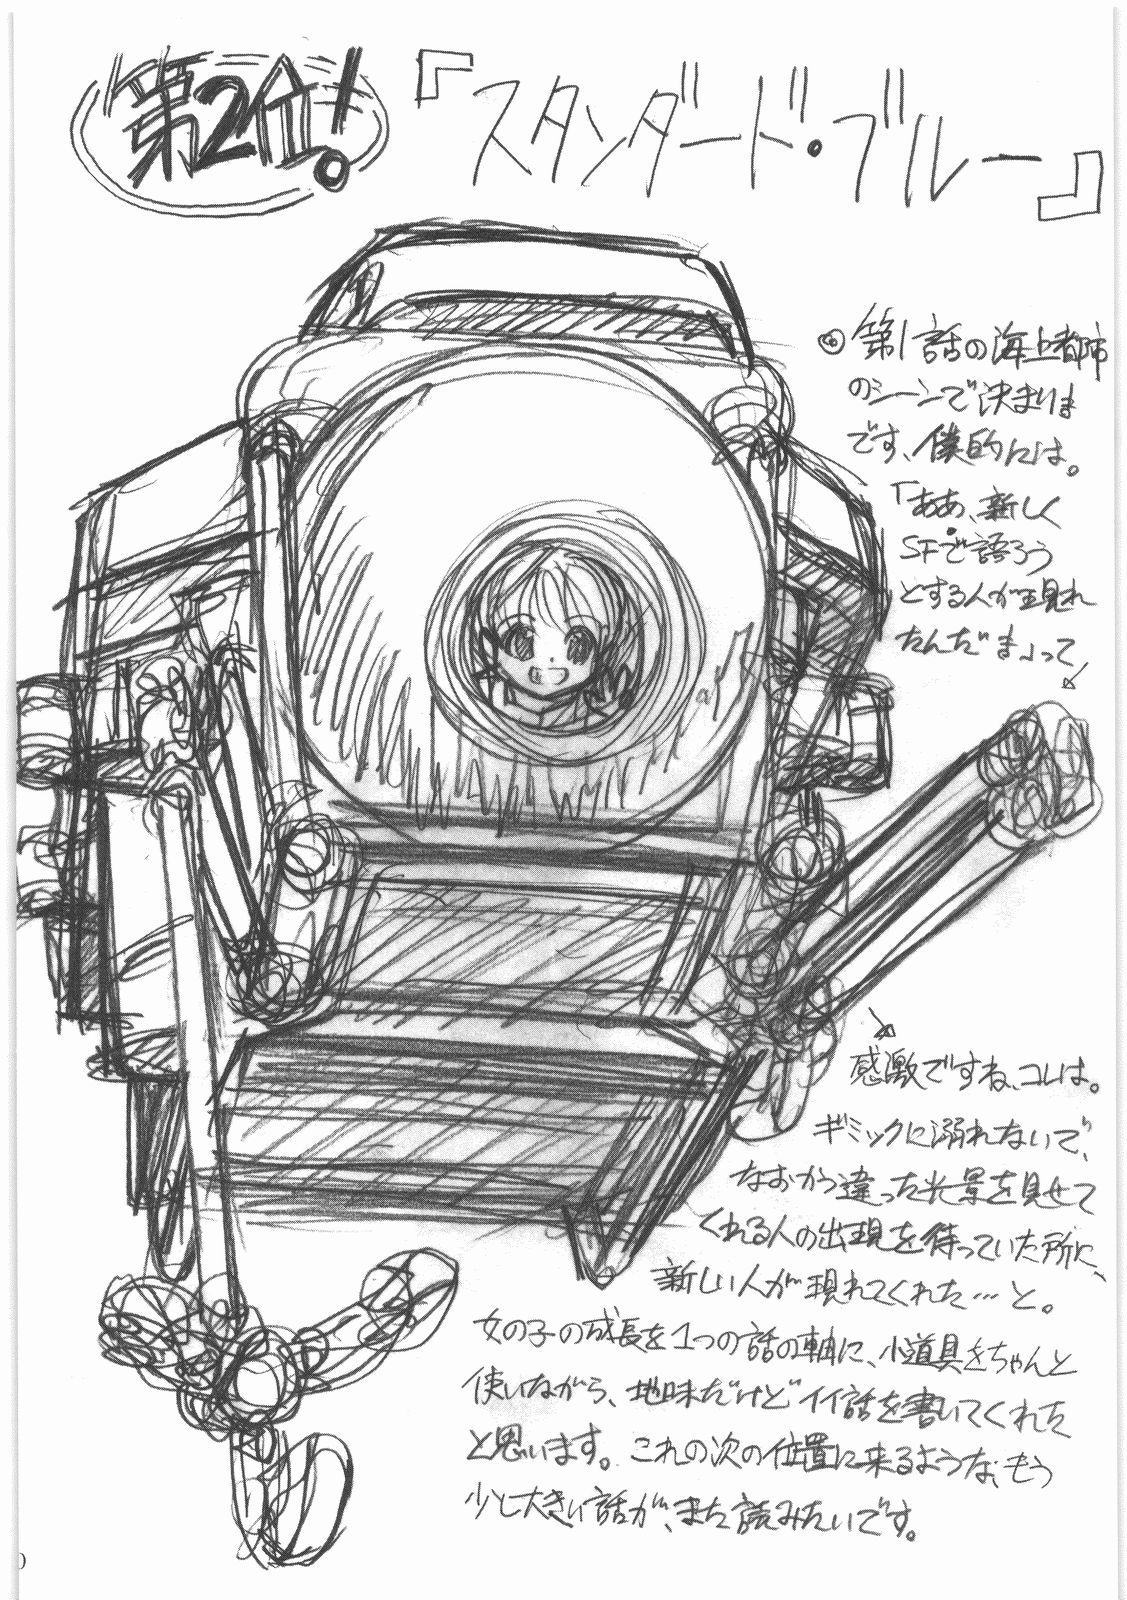 第2位!
『スタンダード・ブルー』
◎第1話の海上都市
のシーンで決まりま
です、僕的には。
「ああ、新しく
SFで語ろう
とする人が現れ
たんだなま」って
感激ですね、コレは。
ギミックに溺れないで、
なおかつ違った光景を見せて
くれる人の出現を待っていた所に、
新しい人が現れてくれた…と。
女の子の成長を1つの話の軸に、小道具をちゃんと
使いながら、地味だけどイイ話を書いてくれた
と思います。これの次の位置に来るような、もう
少し大きい話が、また読みたいです。